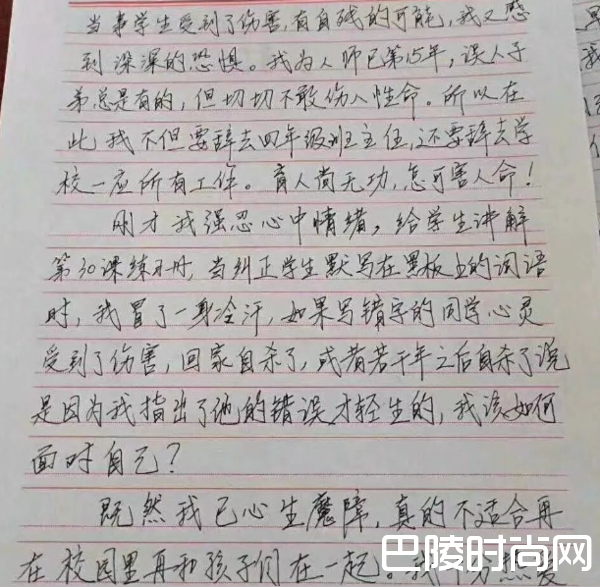 当事学生受到了伤害,有自残的可能,我又感
到深深的恐惧。我为人师已第15年,误人子
弟总是有的,但切切不敢伤人性命。所以在
此我不但要辞去四年级班主任,还要辞去学
校一应所有工作。育人尚无功,怎可害人命!
刚才我强忍心中情绪,给学生讲解
第30课练习册,当纠正学生默写在黑板上的词语
时,我冒了一身冷汗,如果写错字的同学心灵
受到了伤害,回家自杀了,或者若干年之后自杀了说
是因为我指出了他的错误才轻生的,我该如何
面对自己?
既然我已心生魔障,真的不适合再
在校园里再和孩子们在一起。我
巴陵时尚网